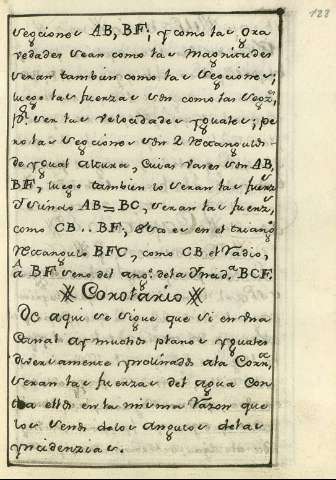 128
secciones AB, BF; y como las gra
vedades sean como las magnitudes
seran tambien como las secciones;
luego las fuerzas son como las secz.s
p.r ser las velocidades yguales; pe
ro las secciones son 2 rectangulos
de ygual altura, cuias vases son AB,
BF, luego tambien lo seran las fuerz.s
siendo AB=BC, seran las fuerz.s
como CB..BF, esto es en el triang.o
rectangulo BFC, como CB el radio,
à BF seno del ang.o de la Yncid.a BCF.
Corolario
De aqui se sigue que si en una
canal ay muchos planos yguales
diversamente ynclinados a la Corr.a,
seran las fuerzas del agua con
tra ellos en la misma razon que
los senos de los angulos de las
yncidenzias.